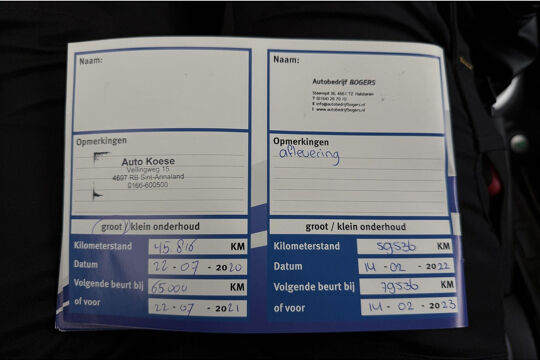 Naam:
Opmerkingen
Auto Koese
Vellingweg 15
4697 RB Sint-Annaland
0166-600500
groot / klein onderhoud
Kilometerstand 45.816 KM
Datum 22-07-2020
Volgende beurt bij 65000 KM
of voor 22-07-2021
Naam:
Autobedrijf BOGERS
Steenspil 36, 4661 TZ Halsteren
T (0164) 26 70 10
E info@autobedrijfbogers.nl
I www.autobedrijfbogers.nl
Opmerkingen
aflevering
groot / klein onderhoud
Kilometerstand 59536 KM
Datum 14-02-2022
Volgende beurt bij 79536 KM
of voor 14-02-2023